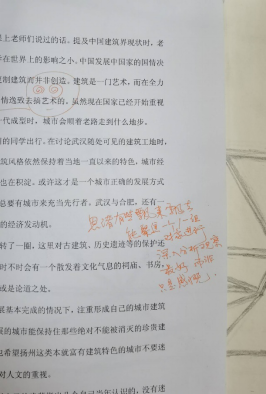 上老师们说过的话。提及中国建筑界现状时,老
在世界上的影响之小,中国发展中国家的国情次
建制建筑而并非创造。建筑是一门艺术,而在全力
情逸致去搞艺术的。虽然现在国家已经开始重视
代成型时,城市会顺着老路走到什么地步。
的同学出行,在讨论武汉随处可见的建筑工地时,
筑风格依然保持着当地一直以来的特色,城市经
也在积淀。或许这才是一个城市正确的发展方式
总要有城市来充当先行者。武汉与合肥,还有一
的经济发动机。
转了一圈,这里对古建筑、历史遗迹等的保护还
时不时会有一个散发着文化气息的祠庙、书房,
或是论道之处。
展基本完成的情况下,注重形成自己的城市建筑
展的城市能保持住那些绝对不能被消灭的珍宝建
也希望扬州这类本就富有建筑特色的城市不要迷
对人文的重视。
思绪有些飘
能靠这一个
对某进行
深入分析
最好